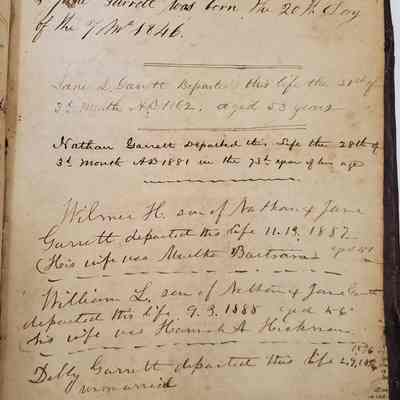 & Jane Garrett was born the 20th Day
of the 7 Mo 1846.
Jane L Garrett Departed this life the 31st of
3d Month AD 1862. aged 53 years
Nathan Garrett Departed this Life the 28th of
3d Month AD 1881 in the 73d year of his age
Wilmer H. son of Nathan & Jane
Garrett departed this life 11.19.1882
(His wife was Martha Bartram) aged
William L. son of Nathan & Jane Garrett
departed this life 9.3.1888 aged 46
his wife was Hannah A Hickman
Debby Garrett departed this life
unmarried